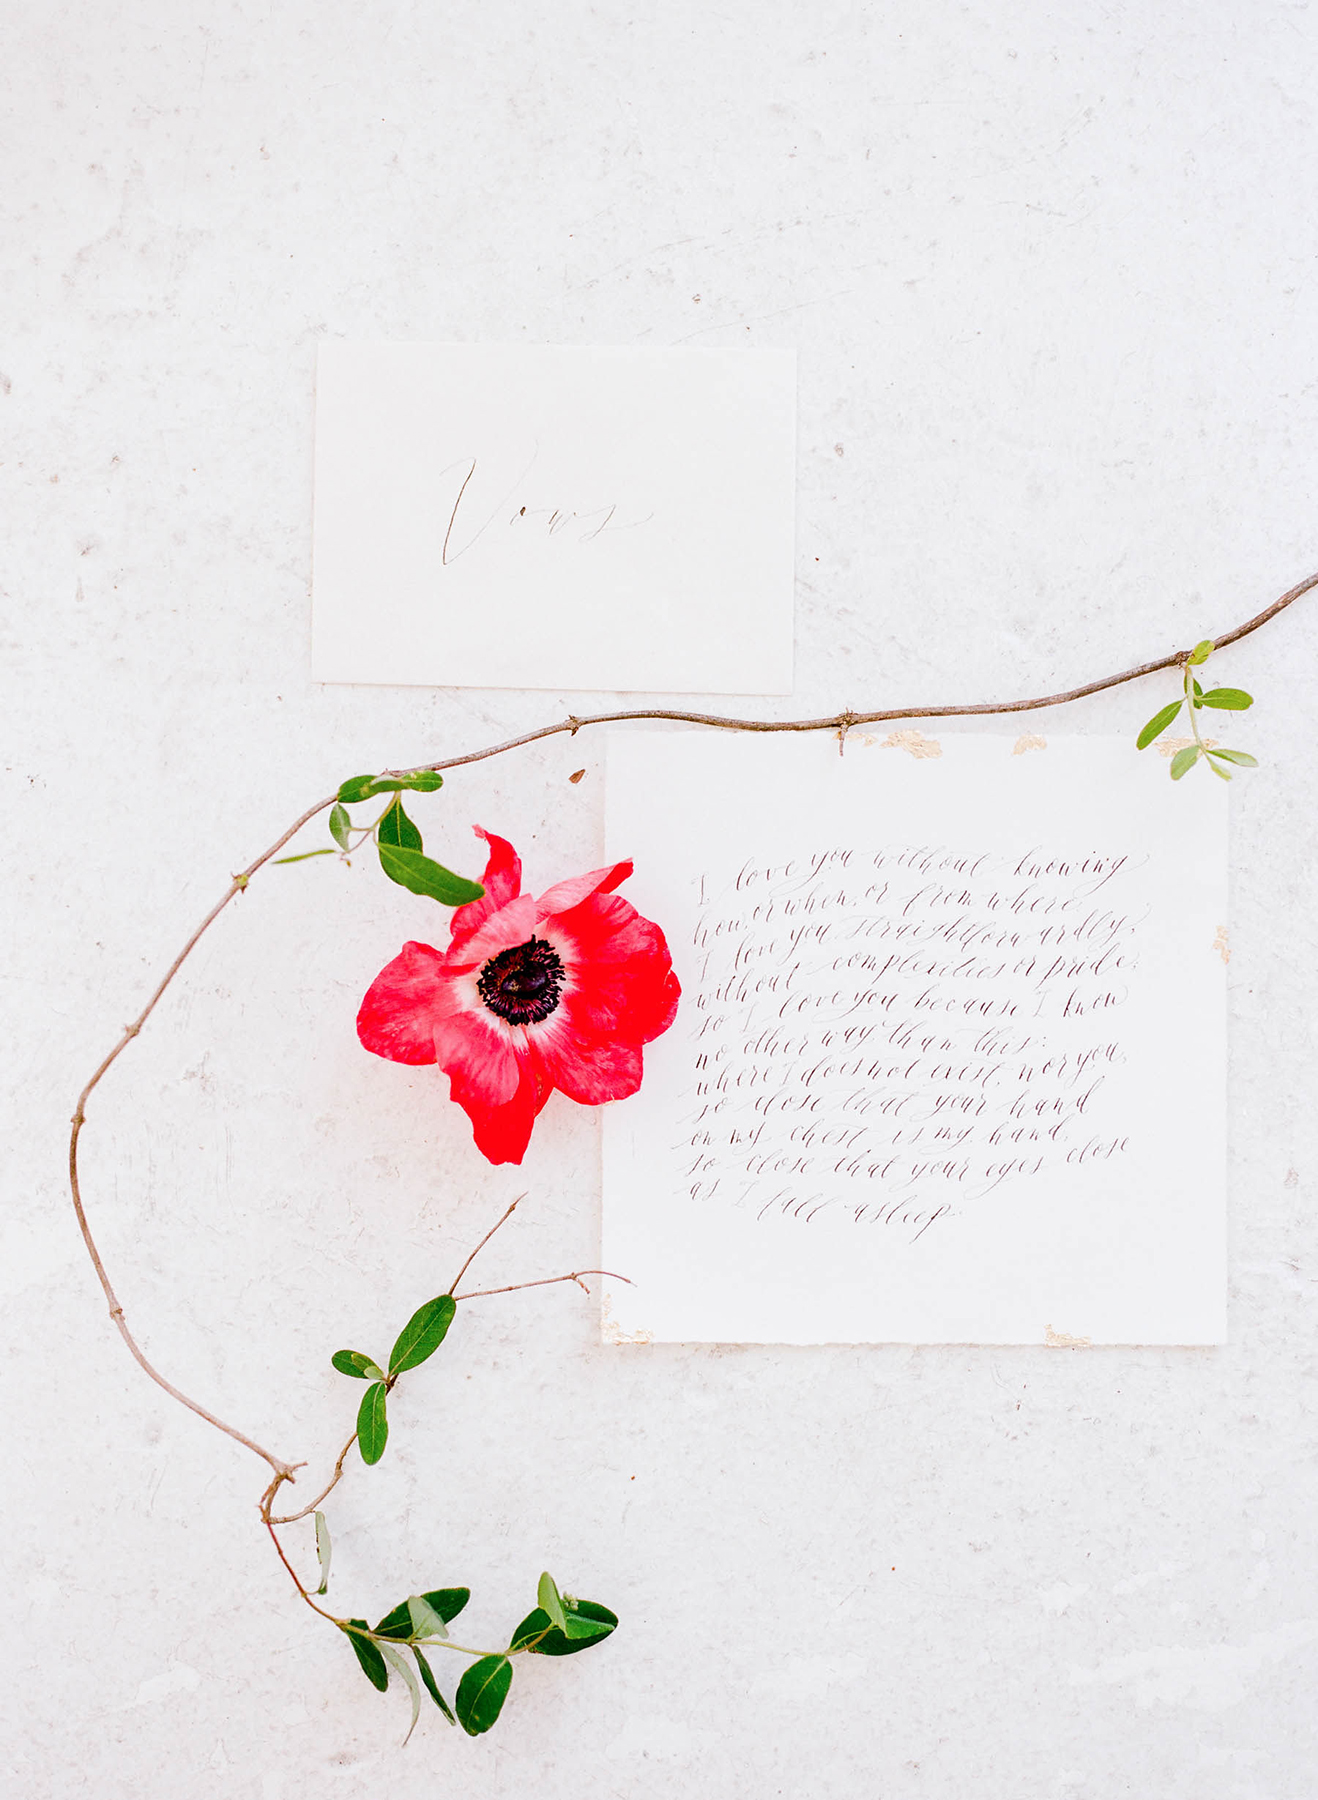 Vows
I love you without knowing
how, or when, or from where,
I love you straightforwardly,
without complexities or pride;
so I love you because I know
no other way than this:
where I does not exist, nor you,
so close that your hand
on my chest is my hand,
so close that your eyes close
as I fall asleep.